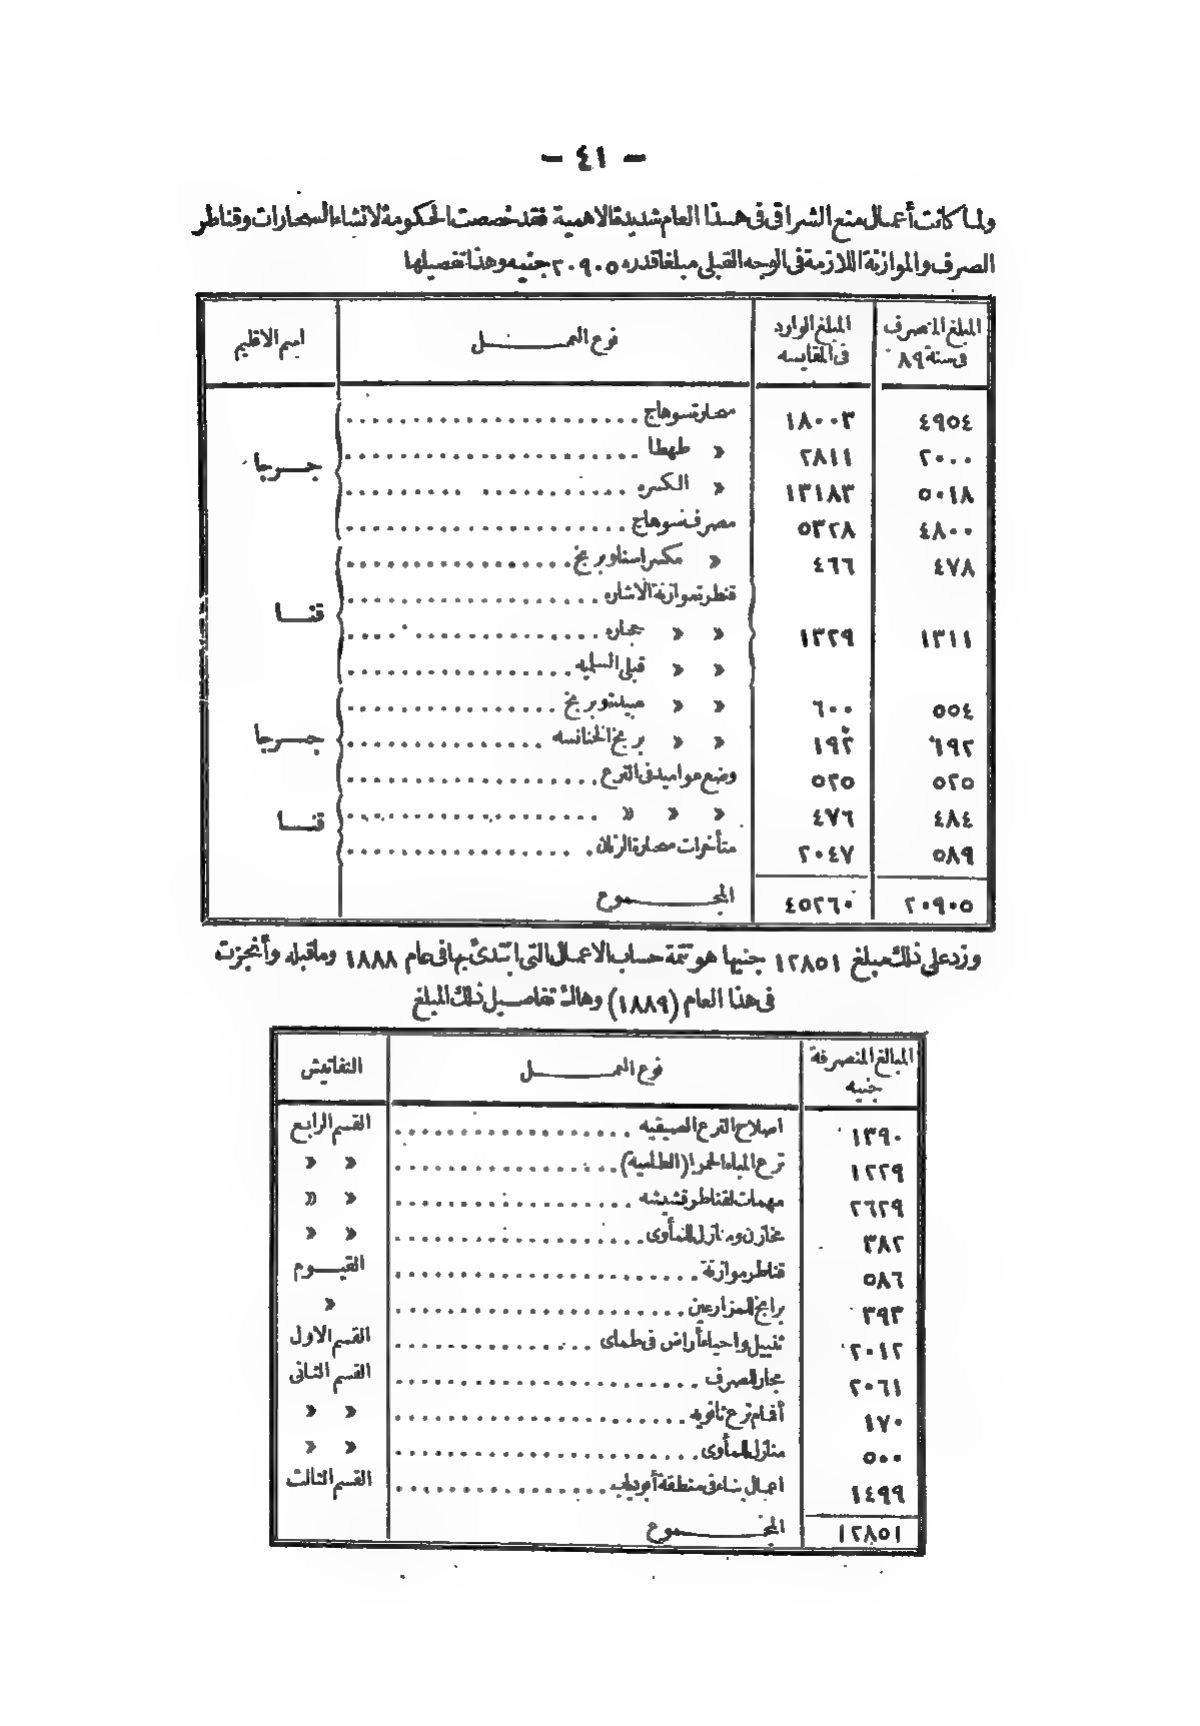 — ٤١ —
ولما كانت أعمال منع الشراقى فى هذا العام شديدة الاهمية فقد خصصت الحكومة لانشاء السحارات وقناطر
الصرف والموازنة اللازمة فى الوجه القبلى مبلغا قدره ٢٠٩٠٥ جنيه وهذا تفصيلها
المبلغ المنصرف فى سنة ٨٩ المبلغ الوارد فى المقايسه نوع العمـل اسم الاقليم
٤٩٥٤ ١٨٠٠٣ سحارة سوهاج
٢٠٠٠ ٢٨١١ » طهطا جـرجا
٥٠١٨ ١٣١٨٣ » الكسره
٤٨٠٠ ٥٣٢٨ مصرف سوهاج
٤٧٨ ٤٦٦ » مكسر اسنا وبربخ
قنطرة موازنة الاشاره قنـا
١٣١١ ١٣٢٩ » » حجازه
» » قبلى السليه
٥٥٤ ٦٠٠ » » وبربخ
٦٩٢ ١٩٢ » » بربخ الخنانسه جـرجا
٥٢٥ ٥٢٥ وضع عواميد فى الترع
٤٨٤ ٤٧٦ » » » قنـا
٥٨٩ ٢٠٤٧ متأخرات سحارة الرنان
٢٠٩٠٥ ٤٥٢٦٠ المجـموع
وزد على ذلك مبلغ ١٢٨٥١ جنيها هو تتمة حساب الاعمال التى ابتدئ بها فى عام ١٨٨٨ وما قبله وأنجزت
فى هذا العام (١٨٨٩) وهاك تفاصيل ذلك المبلغ
المبالغ المنصرفة جنيه نوع العمـل التفاتيش
١٣٩٠ اصلاح الترع الصيفيه القسم الرابع
١٢٢٩ ترع المياه الحمرا (الطلميه) » »
٢٦٢٩ مهمات لقناطر قشيشه » »
٣٨٢ مخازن ومنازل للمأوى » »
٥٨٦ قناطر موازنة الفيـوم
٣٩٣ برابخ للمزارعين »
٢٠١٢ تنييل واحياء أراض فى طماى القسم الاول
٢٠٦١ مجار للصرف القسم الثانى
١٧٠ أفمام ترع ثانويه » »
٥٠٠ منازل للمأوى » »
١٤٩٩ اعمال بناء فى منطقة أبو دياب القسم الثالث
١٢٨٥١ المجـموع